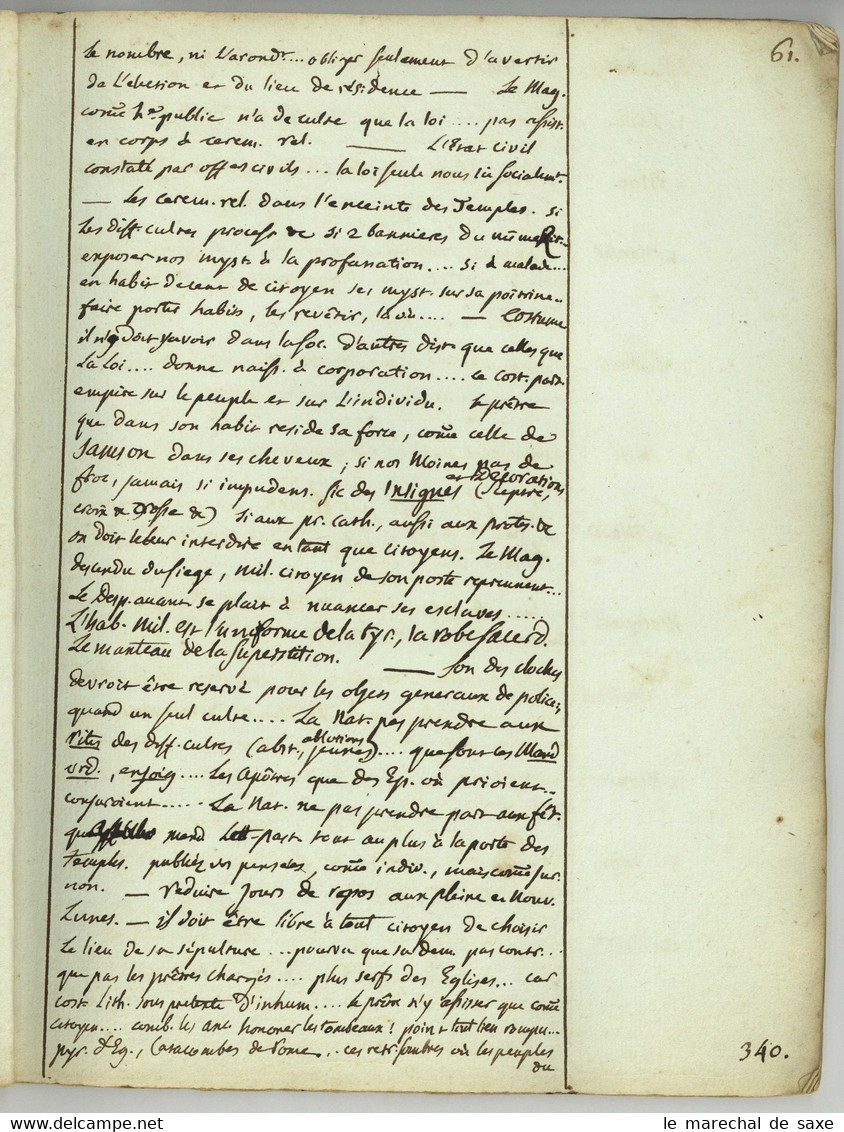 61.
le nombre, ni l'arond.r... obliger seulement d'avertir
de l'election et du lieu de residence — Le Mag.
comē h.e public n'a de culte que la loi .... pas assist.
en corps à cerem. rel. — L'Etat civil
constaté par off.es civils ... la loi seule nous lie socialemt.
— Les cerem. rel. dans l'enceinte des Temples. si
les diff. cultes process. &c si 2 bannieres du mēme
exposer nos myst. à la profanation .... si à malade...
en habit decent de citoyen ses myst. sur sa poitrine..
faire porter habits, les revêtir, là où .... — Costume
il n'y doit y avoir dans la soc. d'autres dist. que celles que
la loi .... donne naiss. à corporation .... ce cost. part.
empire sur le peuple et sur l'individu. le prêtre
que dans son habit reside sa force, comē celle de
Samson dans ses cheveux ; si nos Moines pas de
froc, jamais si impudens. sic des Insignes et Decorations (sceptre,
croix &c crosse &c) si aux pr. cath., aussi aux protest. &c
on doit le leur interdire en tant que citoyens. Le Mag.
descendu du siege, mil. citoyen de son poste reprennent...
Le Desp. avant se plait à nuancer ses esclaves .....
L'hab. mil. est l'uniforme de la tyr., la robe sacerd.
le manteau de la superstition. — son des cloches
devroit être reservé pour les objets generaux de police ;
quand un seul culte .... La Nat. pas prendre aux
rites des diff. cultes (abst., ablutions jeunes) .... que sont ces Mand
ord., enjoig .... Les Apôtres que des Ep. où prioient..
conjuroient ..... La Nat. ne pas prendre part aux fêt.
que mand. part. tout au plus à la porte des
temples. publiez vos pensées, comē indiv., mais comē sur.
non. — reduire jours de repos aux pleine et Nouv.
Lunes. — il doit être libre à tout citoyen de choisir
le lieu de sa sépulture ... pourvu que sa dem. pas contr...
que pas les prêtres chargés .... plus serfs des Eglises... car
cost. lith. sous pretexte d'inhum .... le prêtre n'y assister que comē
citoyen .... comb. les anc. honorer les tombeaux ! point tout lien rompu...
pyr. d'Eg., Catacombes de Rome .. ces retr. sombres où les peuples
du
340.
le marechal de saxe